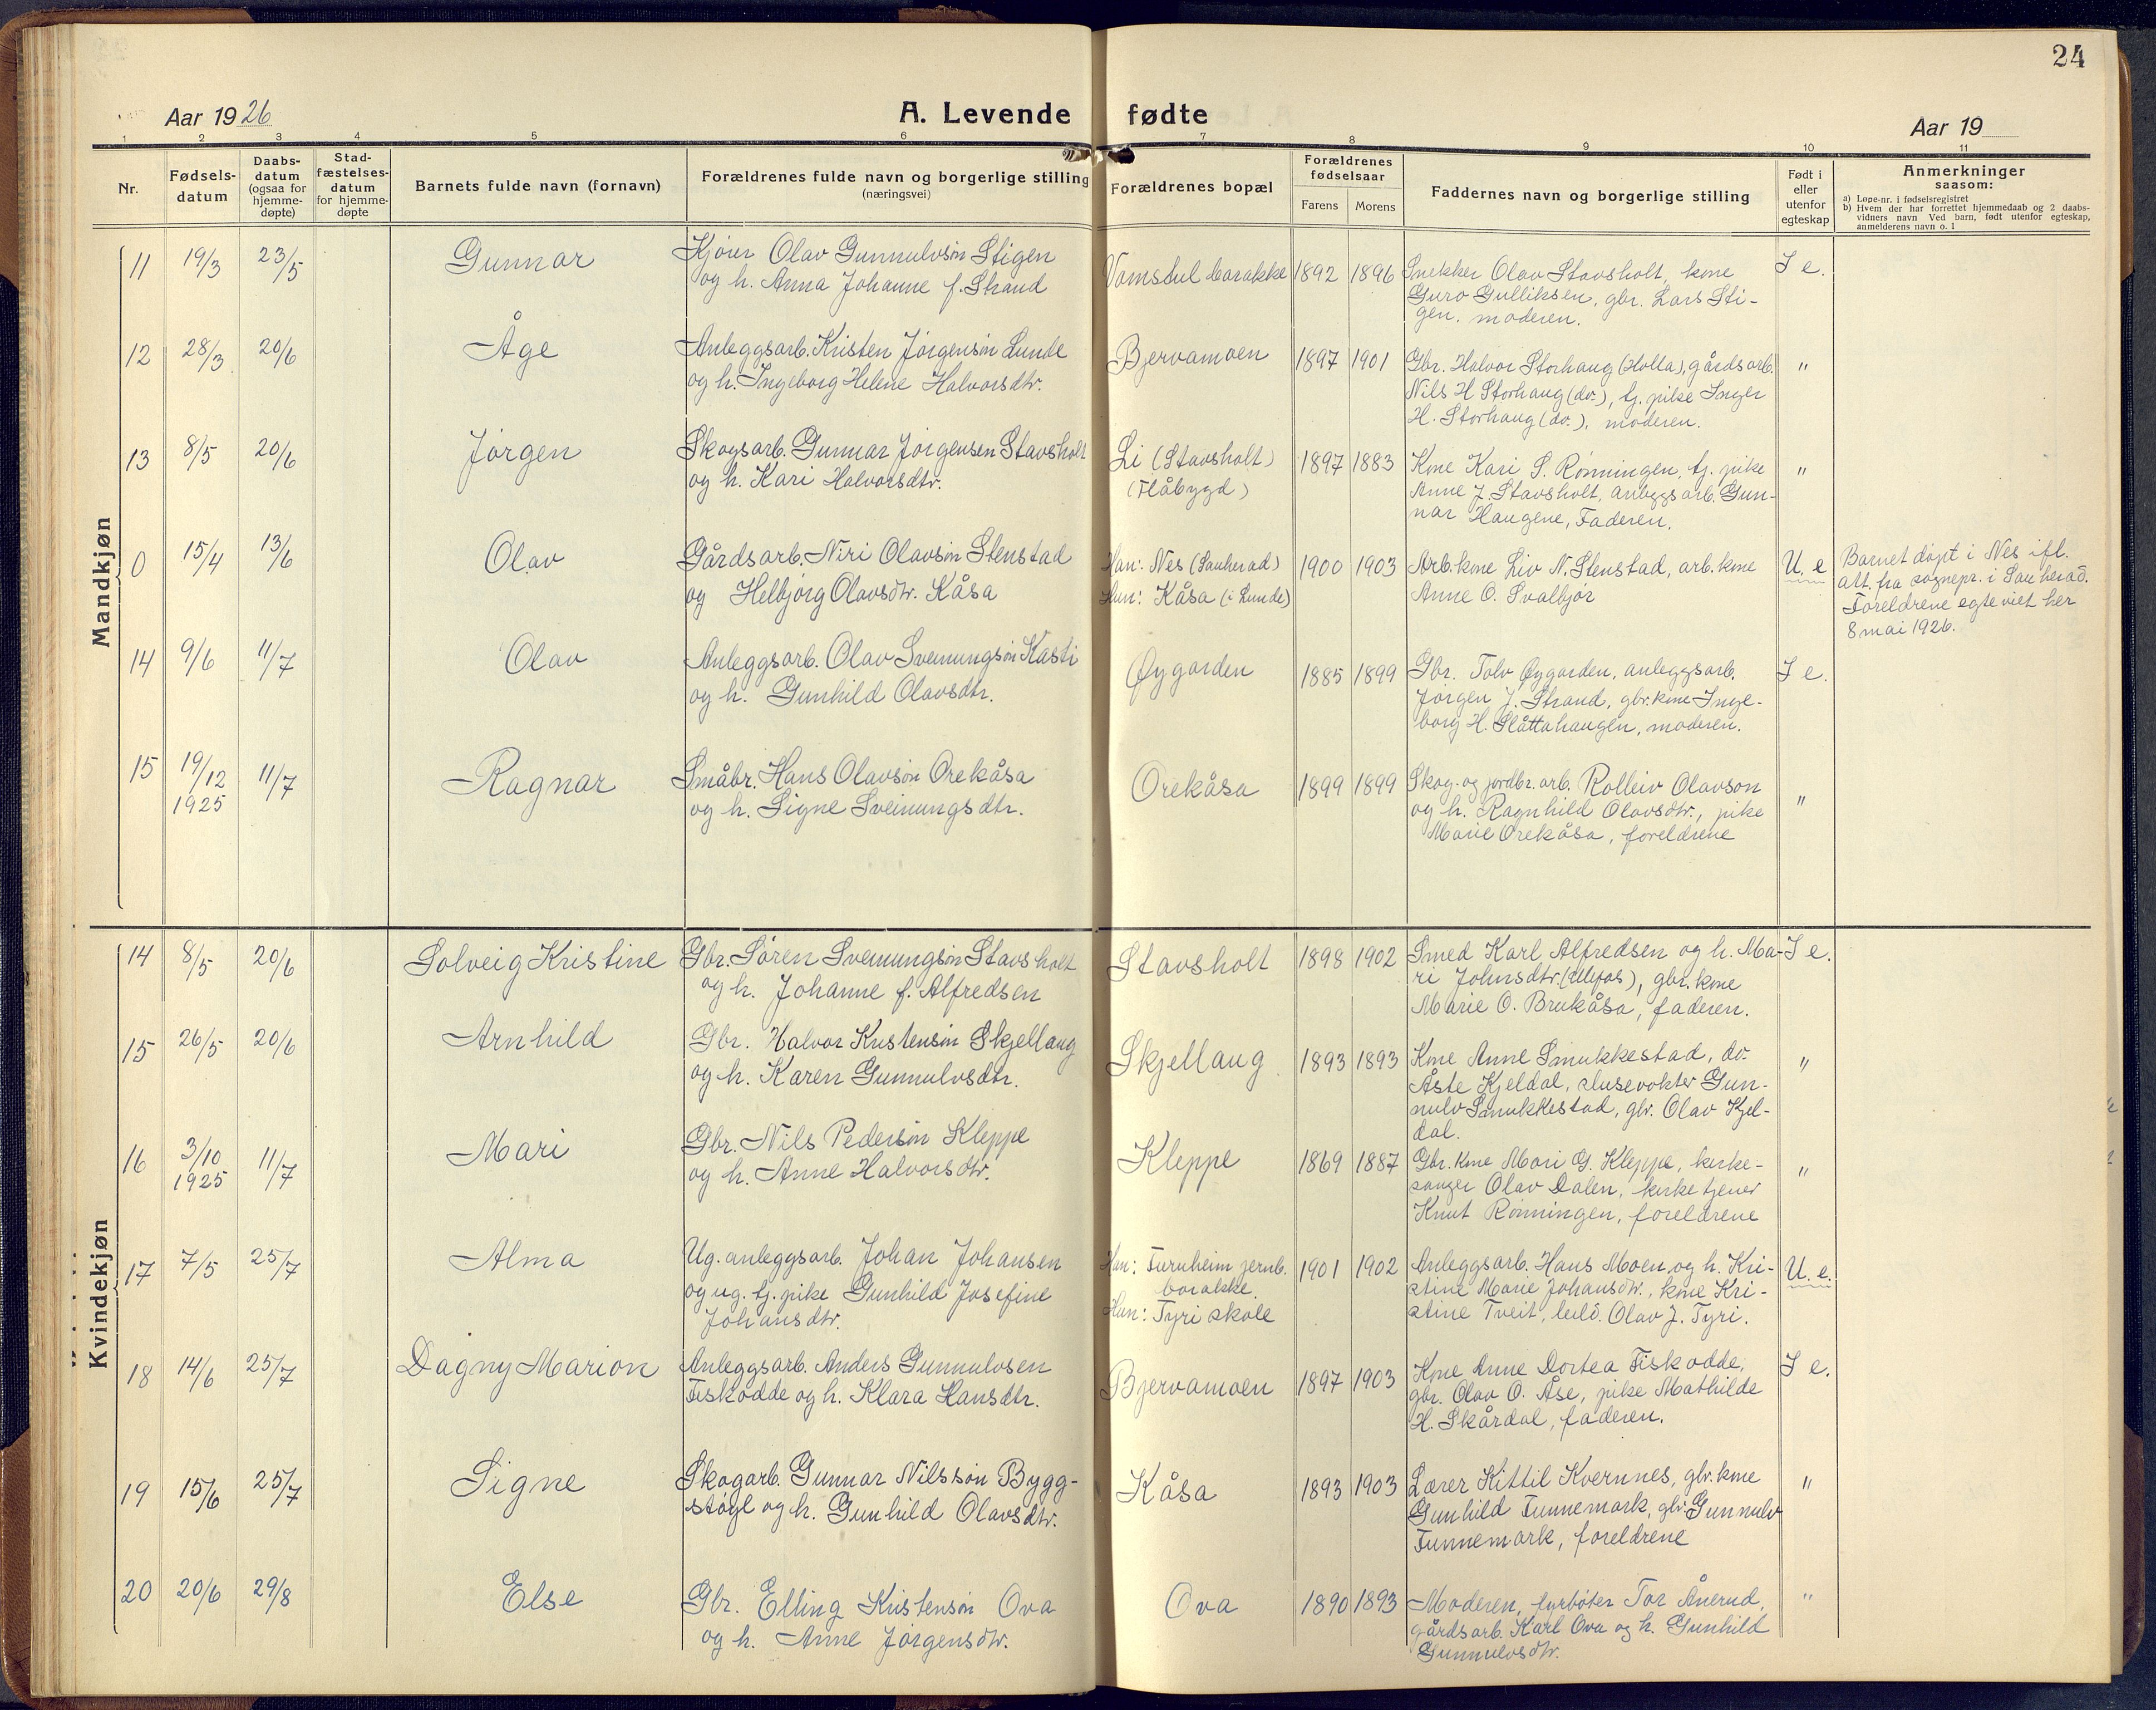 24
Aar 1926
A. Levende fødte
Aar 19
1 2 3 4 5 6 7 8 9 10 11
Nr.
Fødsels-
datum
Daabs-
datum
(ogsaa for
hjemme-
døpte)
Stad-
fæstelses-
datum
for hjemme-
døpte
Barnets fulde navn (fornavn)
Forældrenes fulde navn og borgerlige stilling
(næringsvei)
Forældrenes bopæl
Forældrenes
fødselsaar
Farens Morens
Faddernes navn og borgerlige stilling
Født i
eller
utenfor
egteskap
Anmerkninger
saasom:
a) Løpe-nr. i fødselsregistret
b) Hvem der har forrettet hjemmedaab og 2 daabs-
vidners navn Ved barn, født utenfor egteskap,
anmelderens navn o. l
Mandkjøn
11 19/3 23/5 Gunnar
Kjører Olav Gunnulvsøn Stigen
og h. Anna Johanne f. Strand
Vamsdul barakke 1892 1896
Snekker Olav Stavsholt, kone
Guro Gulliksen, gbr. Lars Sti-
gen, moderen.
I e.
12 28/3 20/6 Åge
Anleggsarb. Kristen Jørgensøn Lunde
og h. Ingeborg Helene Halvorsdtr.
Bjervamoen 1897 1901
Gbr. Halvor Storhaug (Holla), gårdsarb.
Nils H Storhaug (do.), tj. pike Inger
H. Storhaug (do.), moderen.
"
13 8/5 20/6 Jørgen
Skogsarb. Gunnar Jørgensen Stavsholt
og h. Kari Halvorsdtr.
Li (Stavsholt)
(Flåbygd)
1897 1883
Kone Kari S. Rønningen, tj. pike
Anne J. Stavsholt, anleggsarb. Gun-
nar Haugene, Faderen.
"
0 15/4 13/6 Olav
Gårdsarb. Niri Olavsøn Stenstad
og Helbjørg Olavsdtr. Kåsa
Han: Nes (Sauherad)
Hun: Kåsa (i Lunde)
1900 1903
Arb.kone Liv N. Stenstad, arb. kone
Anne O. Svalbjør
U. e
Barnet døpt i Nes ifl.
att. fra sognepr. i Sauherad.
Foreldrene egteviet her
8 mai 1926.
14 9/6 11/7 Olav
Anleggsarb. Olav Sveinungsøn Kasti
og h. Gunhild Olavsdtr.
Øygarden 1885 1899
Gbr. Tolv Øygarden, anleggsarb.
Jørgen J. Strand, gbr.kone Inge-
borg H. Slåttahaugen, moderen.
I e.
15 19/12 1925 11/7 Ragnar
Småbr. Hans Olavsøn Orekåsa
og h. Signe Sveinungsdtr.
Orekåsa 1899 1899
Skog- og jordbr. arb. Rolleiv Olavson
og h. Ragnhild Olavsdtr., pike
Marie Orekåsa, foreldrene
"
Kvindekjøn
14 8/5 20/6 Solveig Kristine
Gbr. Søren Sveinungsøn Stavsholt
og h. Johanne f. Alfredsen
Stavsholt 1898 1902
Smed Karl Alfredsen og h. Ma-
ri Johnsdtr. (Ulefos), gbr. kone
Marie O. Brukåsa, faderen.
I e.
15 26/5 20/6 Arnhild
Gbr. Halvor Kristensøn Skjellaug
og h. Karen Gunnulvsdtr.
Skjellaug 1893 1893
Kone Anne Smukkestad, do.
Åste Kjeldal, slusevokter Gun-
nulv Smukkestad, gbr. Olav Kjel-
dal.
"
16 3/10 1925 11/7 Mari
Gbr. Nils Pedersøn Kleppe
og h. Anne Halvorsdtr.
Kleppe 1869 1887
Gbr. kone Mari G. Kleppe, kirke-
sanger Olav Dalen, kirketjener
Knut Rønningen, foreldrene
"
17 7/5 25/7 Alma
Ug. anleggsarb. Johan Johansen
og ug. tj. pike Gunhild Josefine
Johansdtr.
Han: Furuheim jernb.
barakke.
Hun: Tyri skole
1901 1902
Anleggsarb. Hans Moen og h. Kri-
stine Marie Johansdtr., kone Kri-
stine Tveit, leil. Olav J. Tyri.
U. e.
18 14/6 25/7 Dagny Marion
Anleggsarb. Anders Gunnulvsen
Fiskodde og h. Klara Hansdtr.
Bjervamoen 1897 1903
Kone Anne Dortea Fiskodde,
gbr. Olav O. Åse, pike Mathilde
H. Skårdal, faderen.
I e.
19 15/6 25/7 Signe
Skogarb. Gunnar Nilssøn Bygg-
støyl og h. Gunhild Olavsdtr.
Kåsa 1893 1903
Lærer Kittil Kvernnes, gbr.kone
Gunhild Tunnemark, gbr. Gunnulv
Tunnemark, foreldrene
"
20 20/6 29/8 Else
Gbr. Elling Kristensøn Ova
og h. Anne Jørgensdtr.
Ova 1890 1893
Moderen, fyrbøter Tor Ånerud,
gårdsarb. Karl Ova og h. Gunhild
Gunnulvsdtr.
"